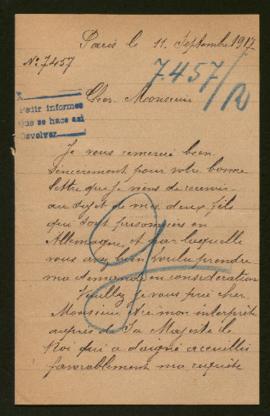 Paris le 11. Septembre 1917
No. 7457
7457/12
Pedir informes
que se hace asi
Devolver
Cher Monsieur
Je vous remercie bien
sincerement pour votre bonne
lettre que je viens de recevoir
au sujet de mes deux fils
qui sont prisoniers en
Allemagne, et par laquelle
vous avez bien voulu prendre
ma demande en consideration
Veuillez je vous prie cher
Monsieur être mon interprète
auprès de Sa Majesté le
Roi qui a daigné accueillir
favorablement ma requête